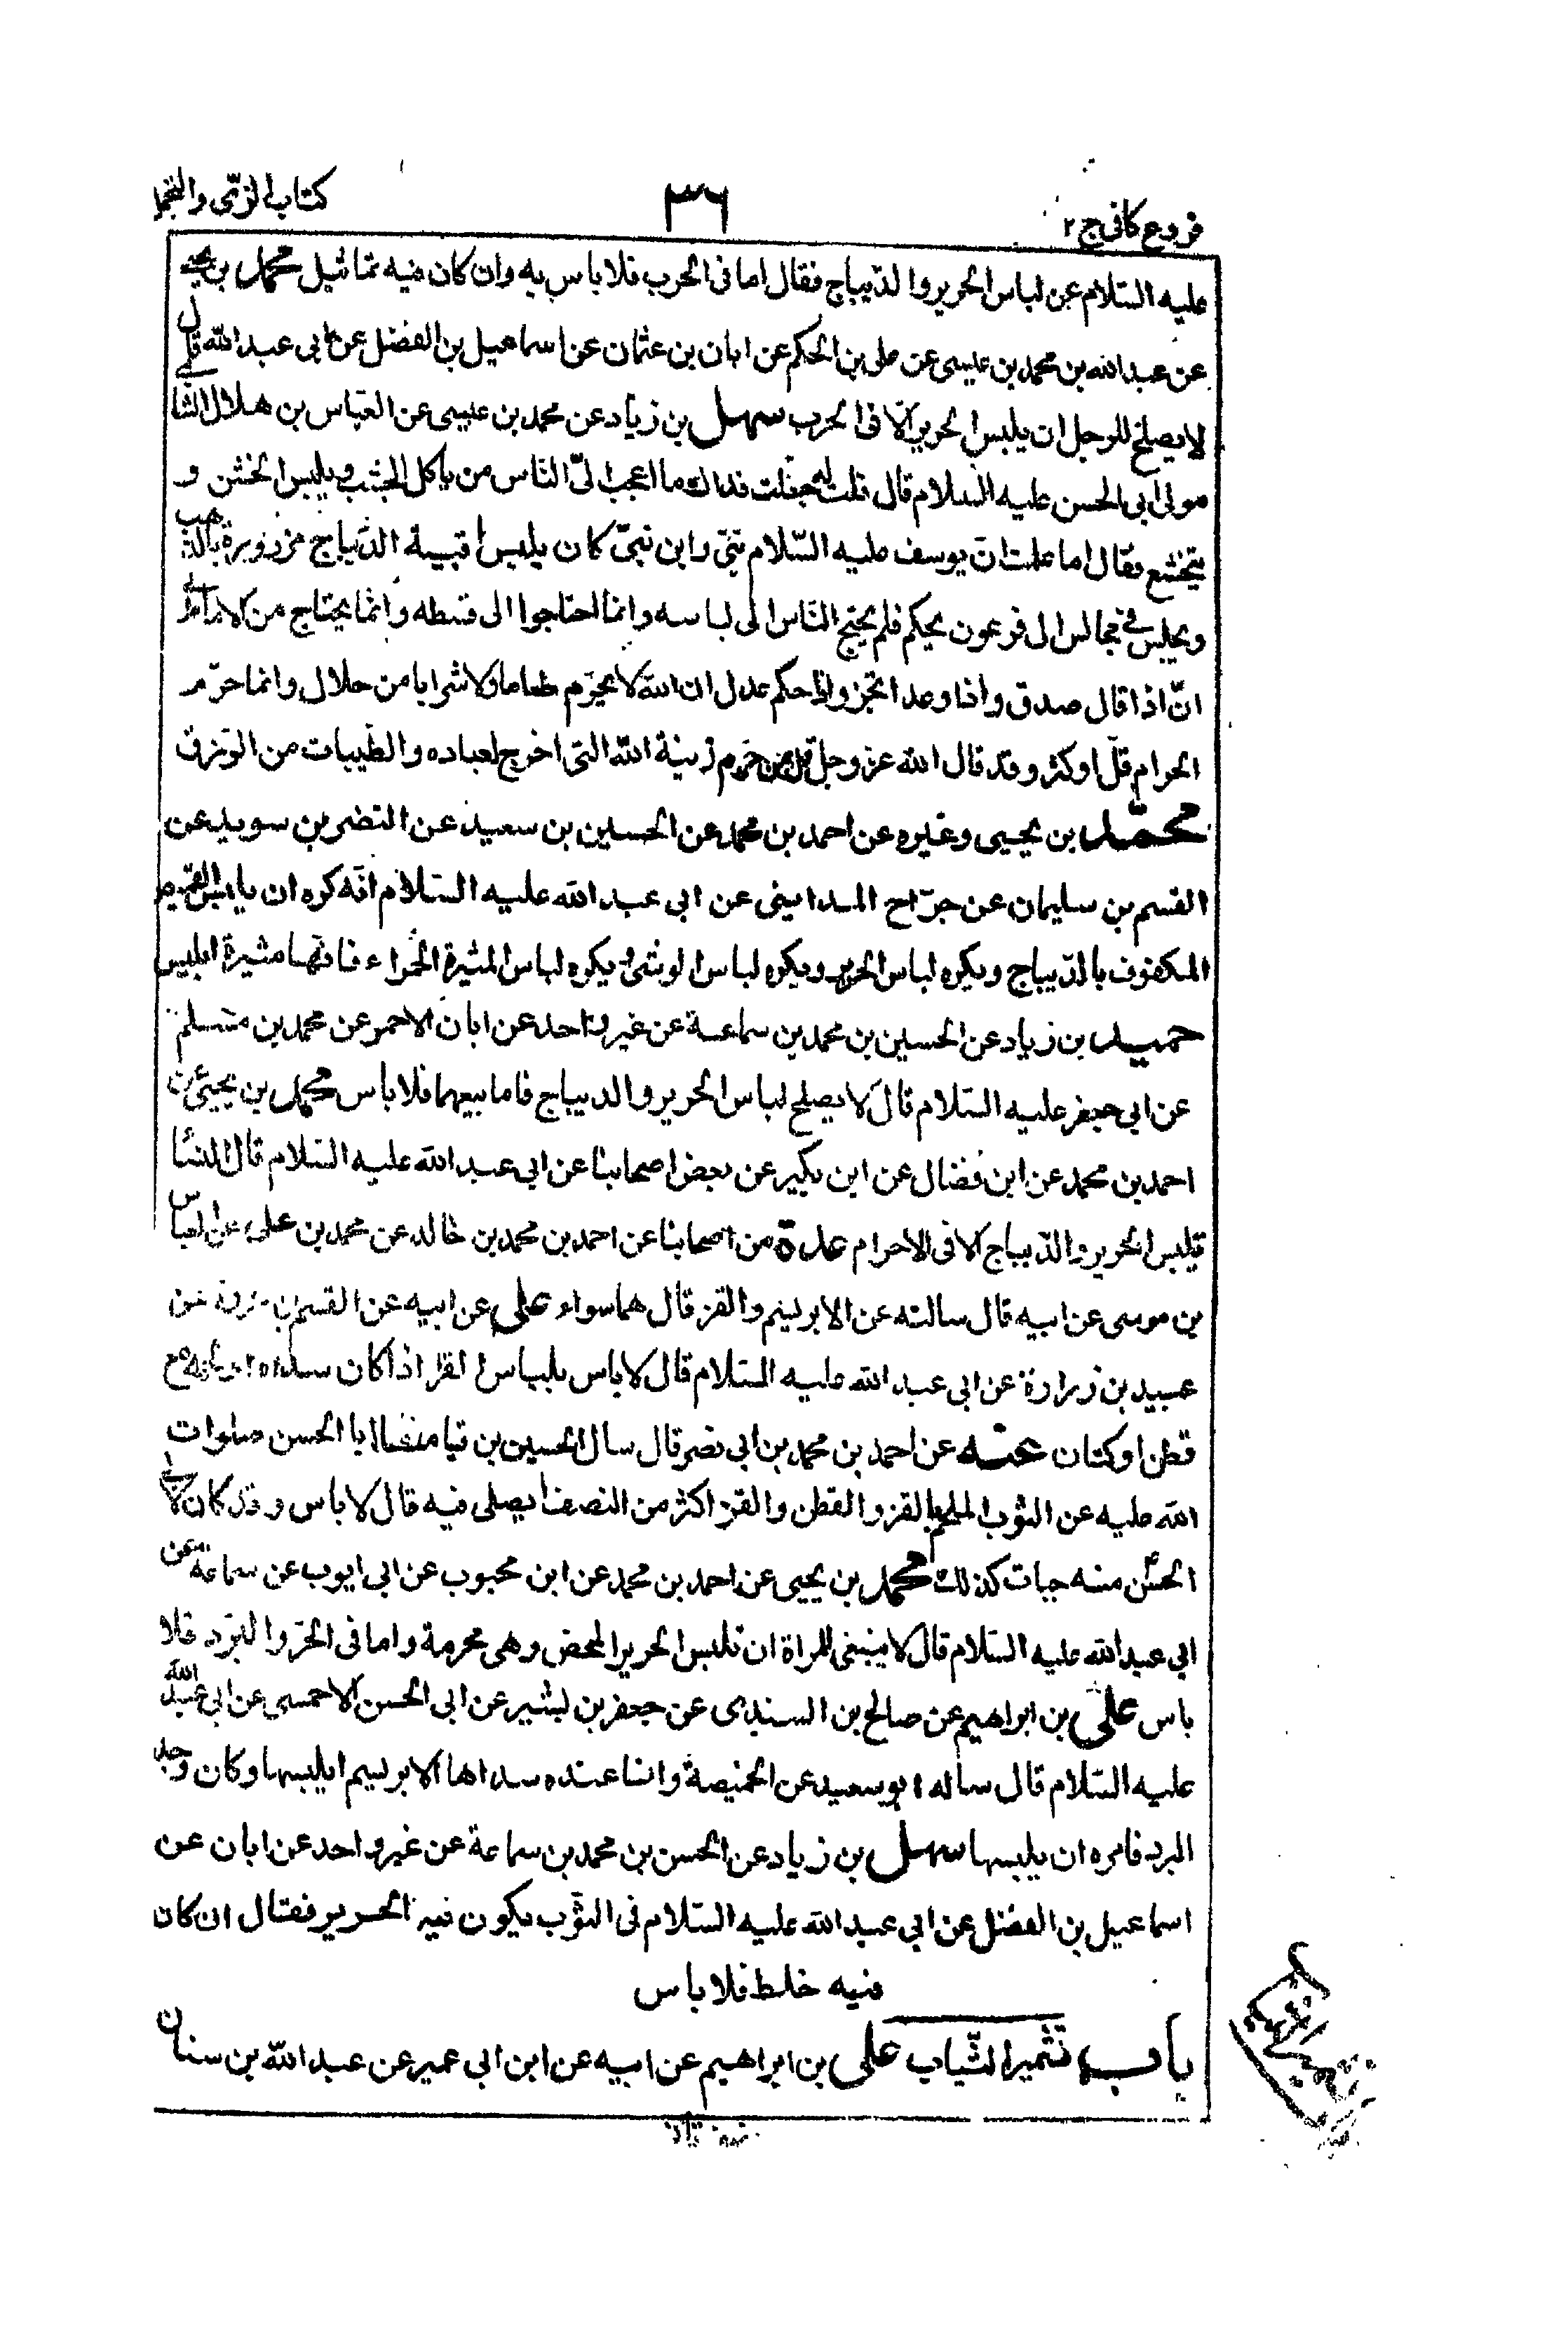 فروع كافى ج ٢
٣٦
كتاب الزّى والتجمل
عليه السّلام عن لباس الحرير والدّيباج فقال اما فى الحرب فلا باس به وان كان فيه تماثيل محمد بن يحيى
عن عبد الله بن محمد بن عيسى عن على بن الحكم عن ابان بن عثمان عن اسماعيل بن الفضل عن ابى عبد الله قال
لا يصلح للرجل ان يلبس الحرير الّا فى الحرب سهل بن زياد عن محمد بن عيسى عن العباس بن هلال الشامى
مولى ابى الحسن عليه السلام قال قلت له جعلت فداك ما اعجب الىّ النّاس من ياكل الجشب ويلبس الخشن و
يتخشع فقال اما علمت انّ يوسف عليه السّلام نبىّ وابن نبىّ كان يلبس اقبية الدّيباج مزرورة بالذهب
ويجلس فى مجالس ال فرعون يحكم فلم يحتج النّاس الى لباسه وانما احتاجوا الى قسطه وانّما يحتاج من الامام
انّ اذا قال صدق واذا وعد انجز واذا حكم عدل ان الله لا يحرّم طعاما ولا شرابا من حلال وانما حرّم
الحرام قلّ او كثر وقد قال الله عز وجل قل من حرم زينة الله التى اخرج لعباده والطيبات من الرّزق
محمّد بن يحيى وغيره عن احمد بن محمد عن الحسين بن سعيد عن النضر بن سويد عن
القسم بن سليمان عن جرّاح المداينى عن ابى عبد الله عليه السّلام انّه كره ان يلبس القميص
المكفوف بالدّيباج ويكره لباس الحرير ويكره لباس الوشى ويكره لباس الميثرة الحمراء فانّها ميثرة ابليس
حميد بن زياد عن الحسين بن محمد بن سماعة عن غير واحد عن ابان الاحمر عن محمد بن مسلم
عن ابى جعفر عليه السّلام قال لا يصلح لباس الحرير والديباج فاما بيعهما فلا باس محمد بن يحيى عن
احمد بن محمد عن ابن فضال عن ابن بكير عن بعض اصحابنا عن ابى عبد الله عليه السّلام قال النسا
تلبس الحرير والدّيباج الا فى الاحرام عدة من اصحابنا عن احمد بن محمد بن خالد عن محمد بن على عن العباس
بن موسى عن ابيه قال سالته عن الابريسم والقز قال هما سواء على عن ابيه عن القسم بن عروة عن
عبيد بن زرارة عن ابى عبد الله عليه السّلام قال لا باس بلباس القز اذا كان سداه او لحمته مع
قطن او كتان عنه عن احمد بن محمد بن ابى نصر قال سال الحسين بن قياما ابا الحسن صلوات
الله عليه عن الثوب الملحم بالقز والقطن والقز اكثر من النصف ايصلى فيه قال لا باس وقد كان لابى
الحسن منه جبات كذلك محمد بن يحيى عن احمد بن محمد عن ابن محبوب عن ابى ايوب عن سماعة عن
ابى عبد الله عليه السّلام قال لا ينبغى للمراة ان تلبس الحرير المحض وهى محرمة واما فى الحرّ والبرد فلا
باس على بن ابراهيم عن صالح بن السندى عن جعفر بن بشير عن ابى الحسن الاحمسى عن ابى عبد الله
عليه السّلام قال ساله ابو سعيد عن الخميصة وانا عنده سداها الابريسم ايلبسها وكان وجد
البرد فامره ان يلبسها سهل بن زياد عن الحسن بن محمد بن سماعة عن غير واحد عن ابان عن
اسماعيل بن الفضل عن ابى عبد الله عليه السّلام فى الثّوب يكون فيه الحرير فقال ان كان
فيه خلط فلا باس
باب تشمير الثّياب على بن ابراهيم عن ابيه عن ابن ابى عمير عن عبد الله بن سنان